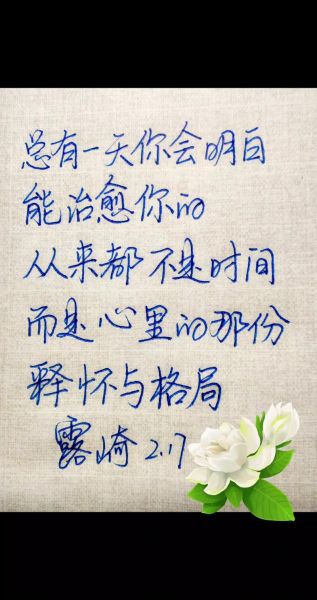 总有一天你会明白
能治愈你的
从来都不是时间
而是心里的那份
释怀与格局
露崎 2.17